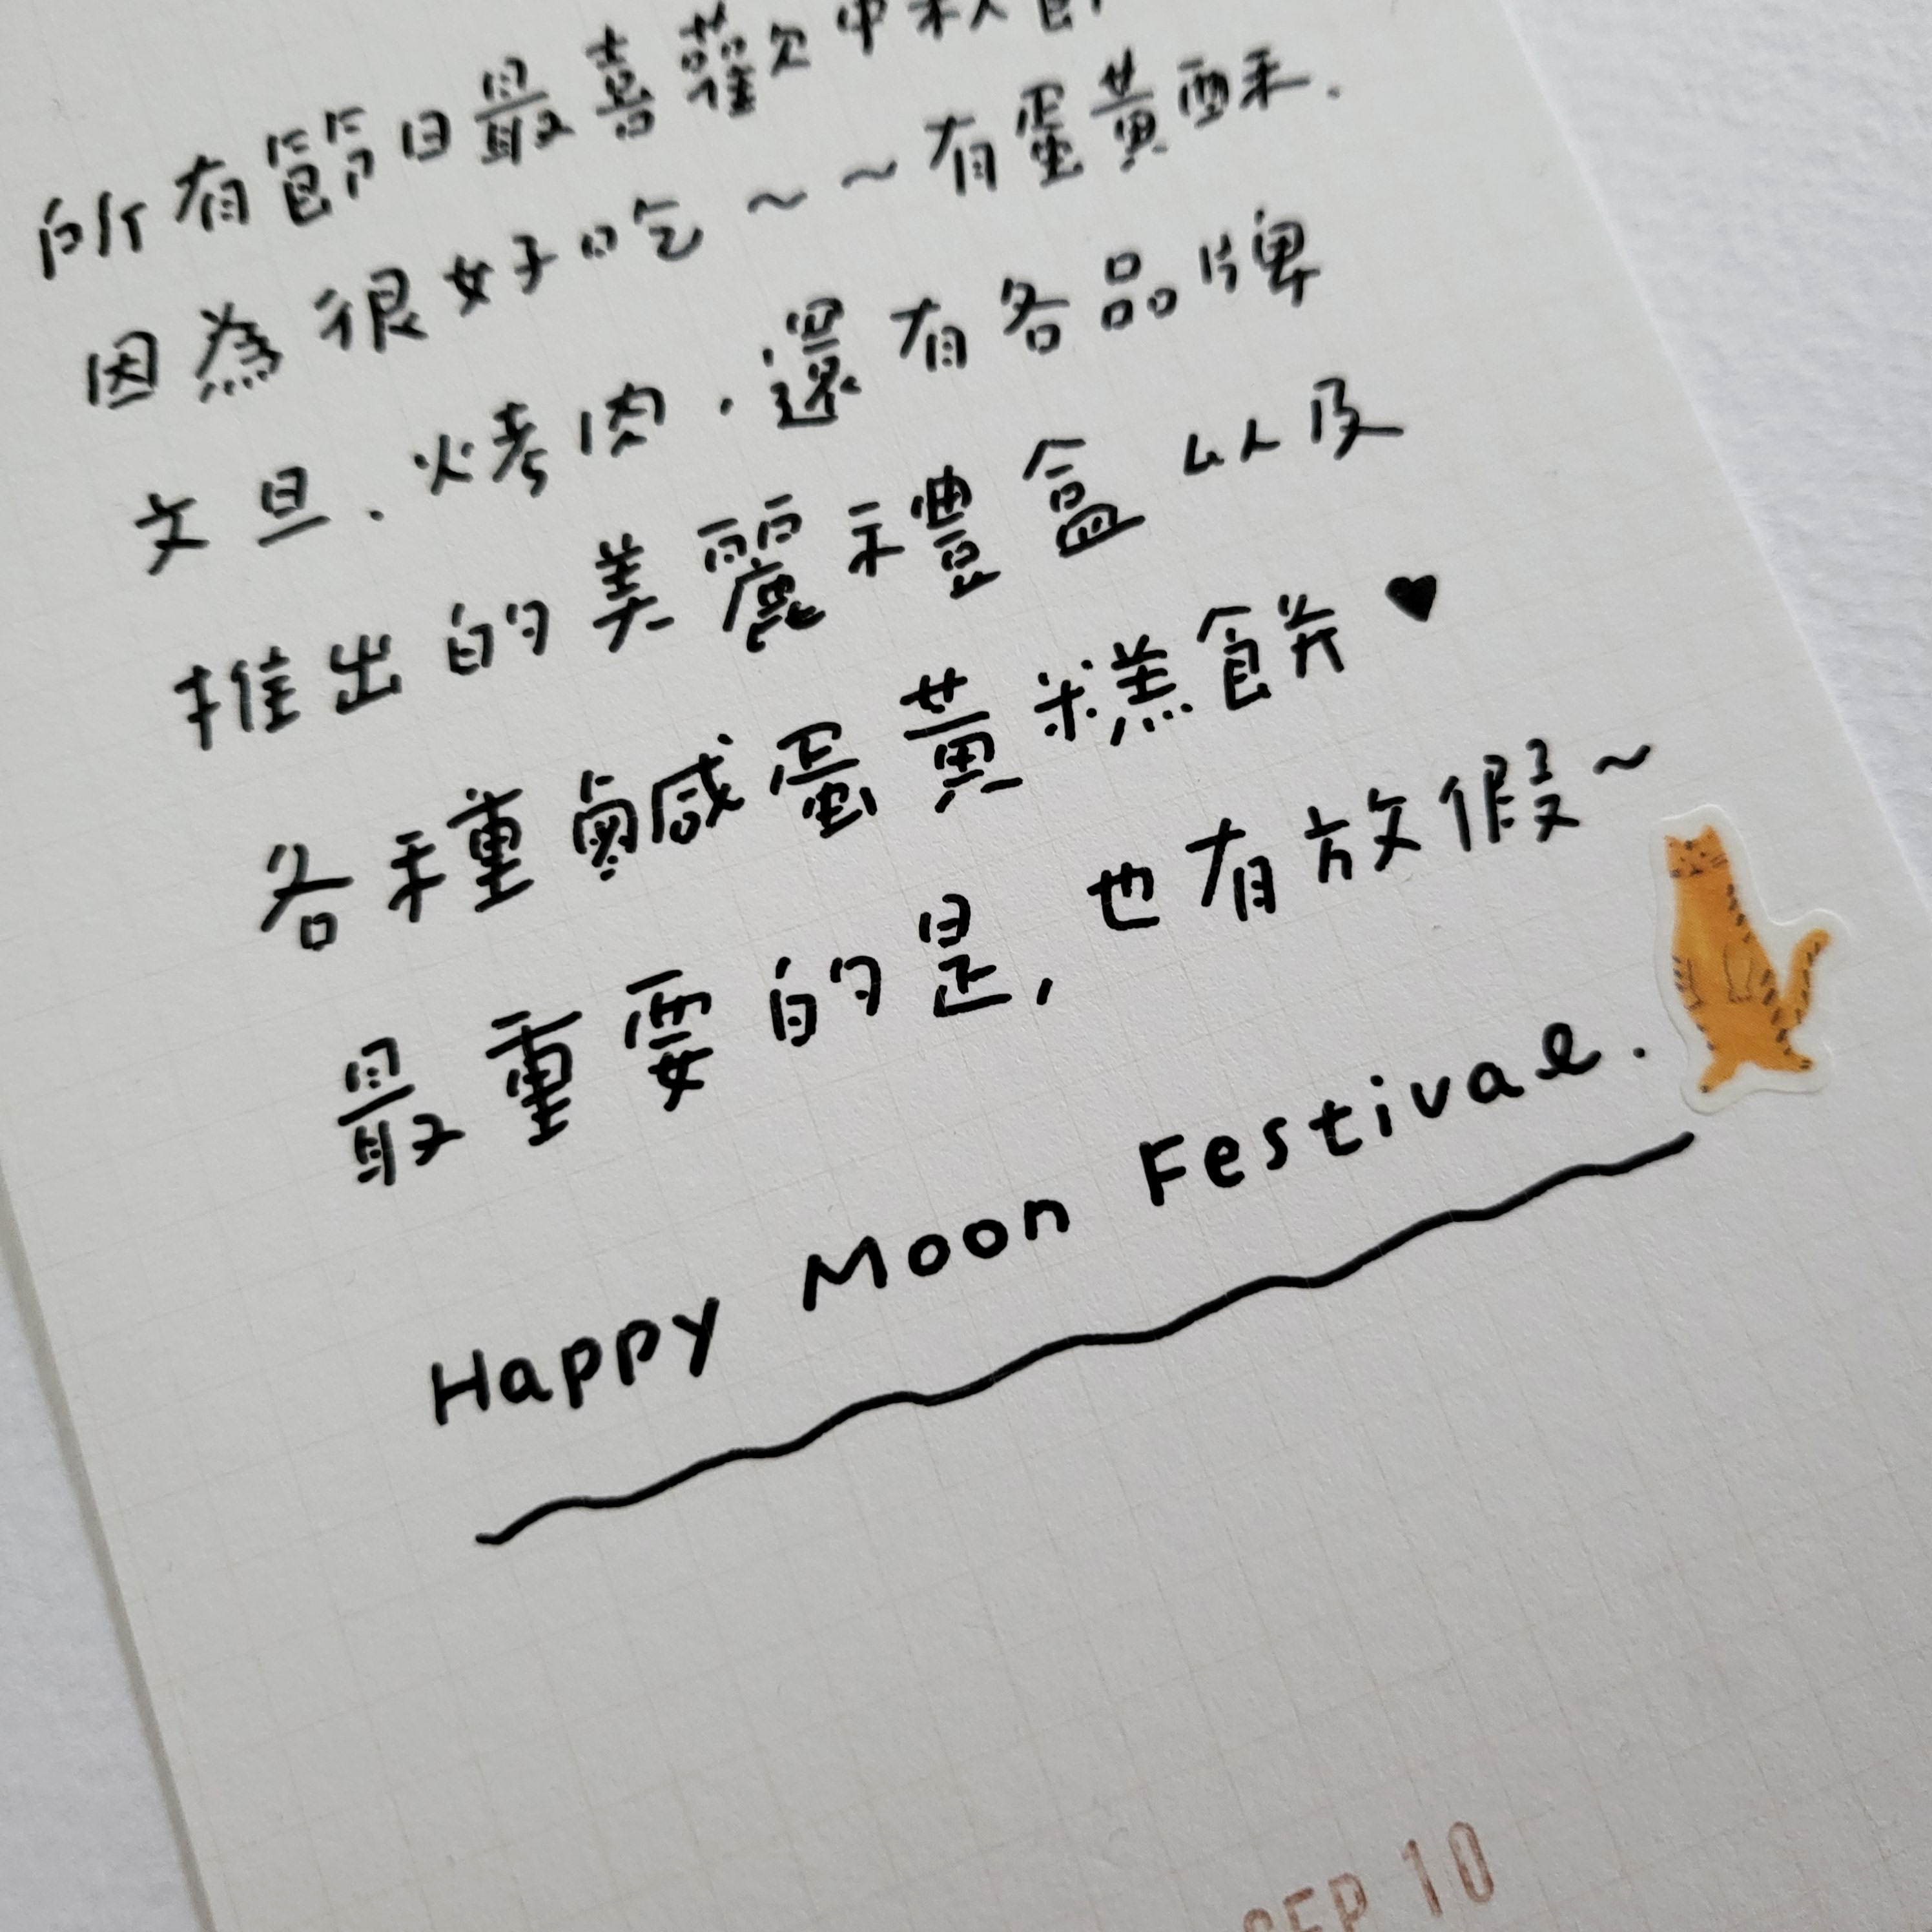 所有節日最喜歡中秋節
因為很好吃~~有蛋黃酥.
文旦、烤肉,還有各品牌
推出的美麗禮盒以及
各種鹹蛋黃糕餅♥
最重要的是,也有放假~
Happy Moon Festival.
SEP 10